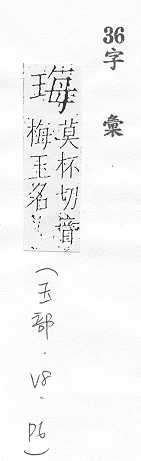 36
字彙
珻
莫杯切音
梅玉名
(玉部．V8．P6)